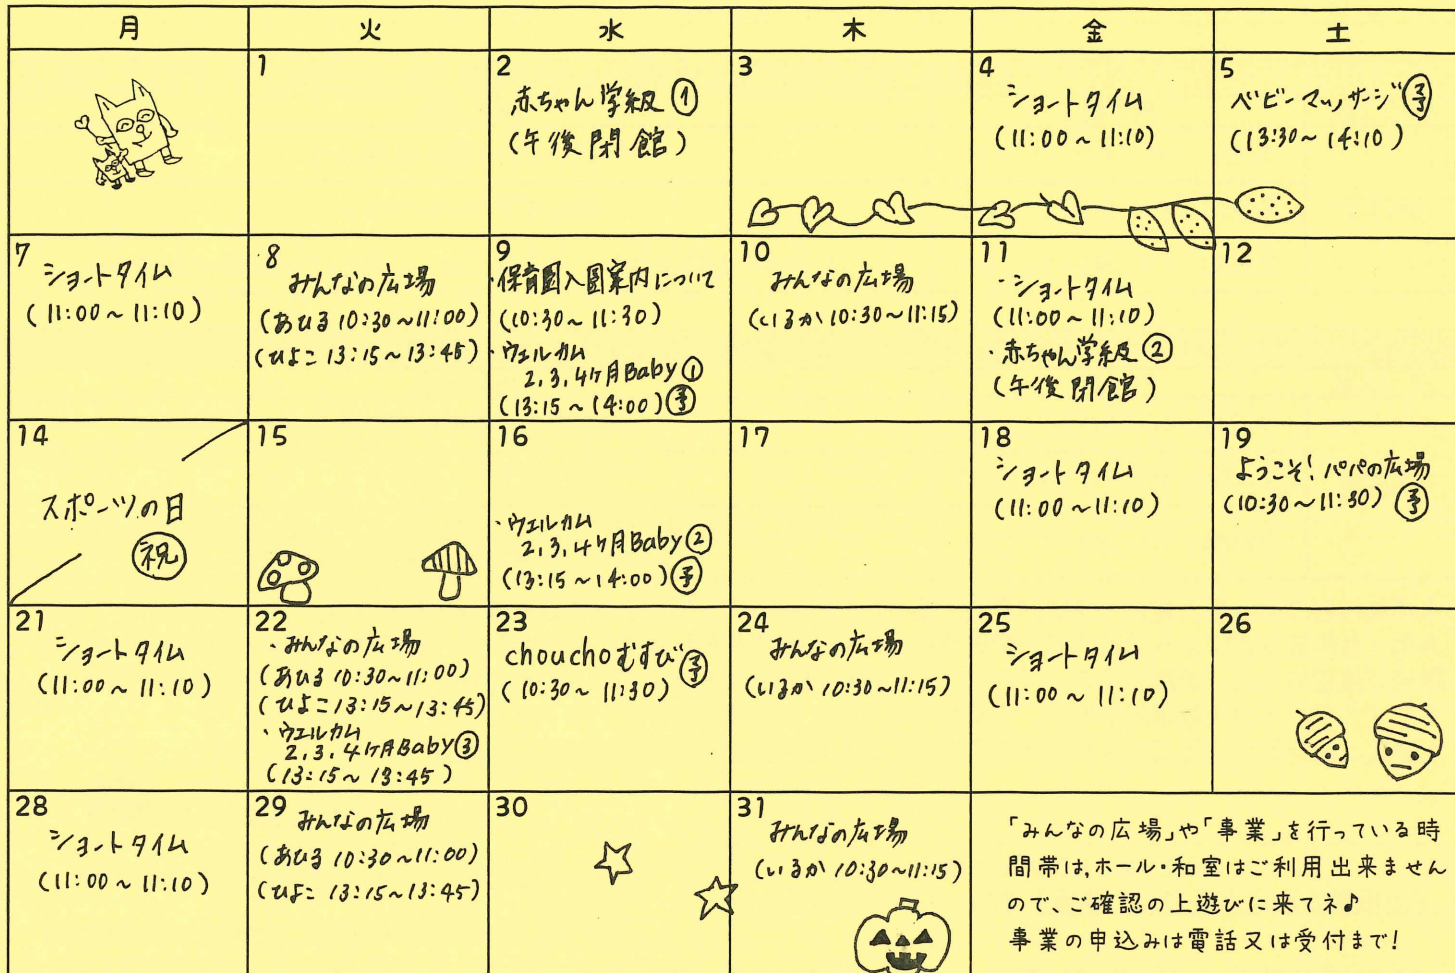 月 火 水 木 金 土
1
2
赤ちゃん学級①
(午後閉館)
3
4
ショートタイム
(11:00~11:10)
5
ベビーマッサージ㋵
(13:30~14:10)
7
ショートタイム
(11:00~11:10)
8
みんなの広場
(あひる 10:30~11:00)
(ひよこ 13:15~13:45)
9
・保育園入園案内について
(10:30~11:30)
・ウェルカム
2,3,4ヶ月Baby①
(13:15~14:00)予
10
みんなの広場
(いるか 10:30~11:15)
11
・ショートタイム
(11:00~11:10)
・赤ちゃん学級②
(午後閉館)
12
14
スポーツの日
㊗
15
16
・ウェルカム
2,3,4ヶ月Baby②
(13:15~14:00)予
17
18
ショートタイム
(11:00~11:10)
19
ようこそ!パパの広場
(10:30~11:30)予
21
ショートタイム
(11:00~11:10)
22
・みんなの広場
(あひる 10:30~11:00)
(ひよこ 13:15~13:45)
・ウェルカム
2,3,4ヶ月Baby③
(13:15~13:45)
23
chouchoむすび予
(10:30~11:30)
24
みんなの広場
(いるか 10:30~11:15)
25
ショートタイム
(11:00~11:10)
26
28
ショートタイム
(11:00~11:10)
29
みんなの広場
(あひる 10:30~11:00)
(ひよこ 13:15~13:45)
30
31
みんなの広場
(いるか 10:30~11:15)
「みんなの広場」や「事業」を行っている時
間帯は、ホール・和室はご利用出来ません
ので、ご確認の上遊びに来てネ♪
事業の申込みは電話又は受付まで!